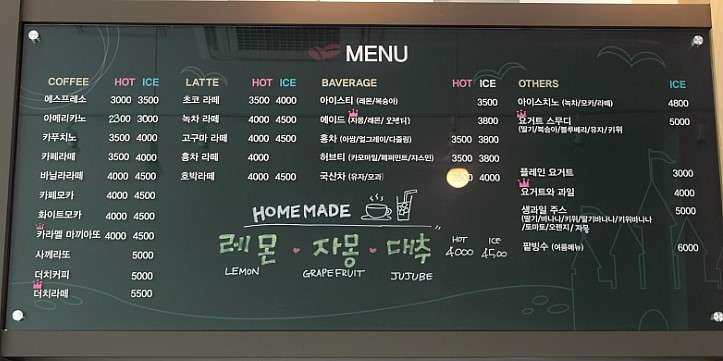 MENU
COFFEE HOT ICE
에스프레소 3000 3500
아메리카노 2300 3000
카푸치노 3500 4000
카페라떼 3500 4000
바닐라라떼 4000 4500
카페모카 4000 4500
화이트모카 4000 4500
카라멜 마끼아또 4000 4500
사께라또 5000
더치커피 5000
더치라떼 5500
LATTE HOT ICE
초코 라떼 3500 4000
녹차 라떼 4000 4500
고구마 라떼 4000 4500
홍차 라떼 4000
호박라떼 4000 4500
BAVERAGE HOT ICE
아이스티 (레몬/복숭아) 3500
에이드 (자몽/레몬/오렌지) 3800
홍차 (아쌈/얼그레이/다즐링) 3500 3800
허브티 (카모마일/페퍼민트/자스민) 3500 3800
국산차 (유자/모과) 4000
OTHERS ICE
아이스치노 (녹차/모카/라떼) 4800
요거트 스무디 5000
(딸기/복숭아/블루베리/유자/키위
플레인 요거트 3000
요거트와 과일 4000
생과일 주스 5000
(딸기/바나나/키위/딸기바나나/키위바나나
/토마토/오렌지/자몽
팥빙수 (여름메뉴) 6000
HOMEMADE
레몬 · 자몽 · 대추 HOT 4000 ICE 4500
LEMON GRAPEFRUIT JUJUBE